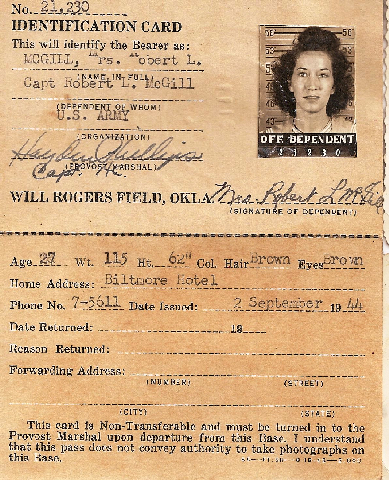 No. 21,230
IDENTIFICATION CARD
This will identify the Bearer as:
MCGILL, Mrs. Robert L.
(NAME, IN FULL)
Capt Robert L. McGill
(DEPENDENT OF WHOM)
U.S. ARMY
(ORGANIZATION)
Hayden Phillips
Capt.
(PROVOST MARSHAL)
WILL ROGERS FIELD, OKLA.
Mrs. Robert L McGill
(SIGNATURE OF DEPENDENT)
OFF. DEPENDENT
21230
Age 27 Wt. 115 Ht. 62" Col. Hair Brown Eyes Brown
Home Address: Biltmore Hotel
Phone No. 7-5611 Date Issued: 2 September 1944
Date Returned: 19
Reason Returned:
Forwarding Address:
(NUMBER) (STREET)
(CITY) (STATE)
This card is Non-Transferable and must be turned in to the
Provost Marshal upon departure from this Base. I understand
that this pass does not convey authority to take photographs on
this Base.